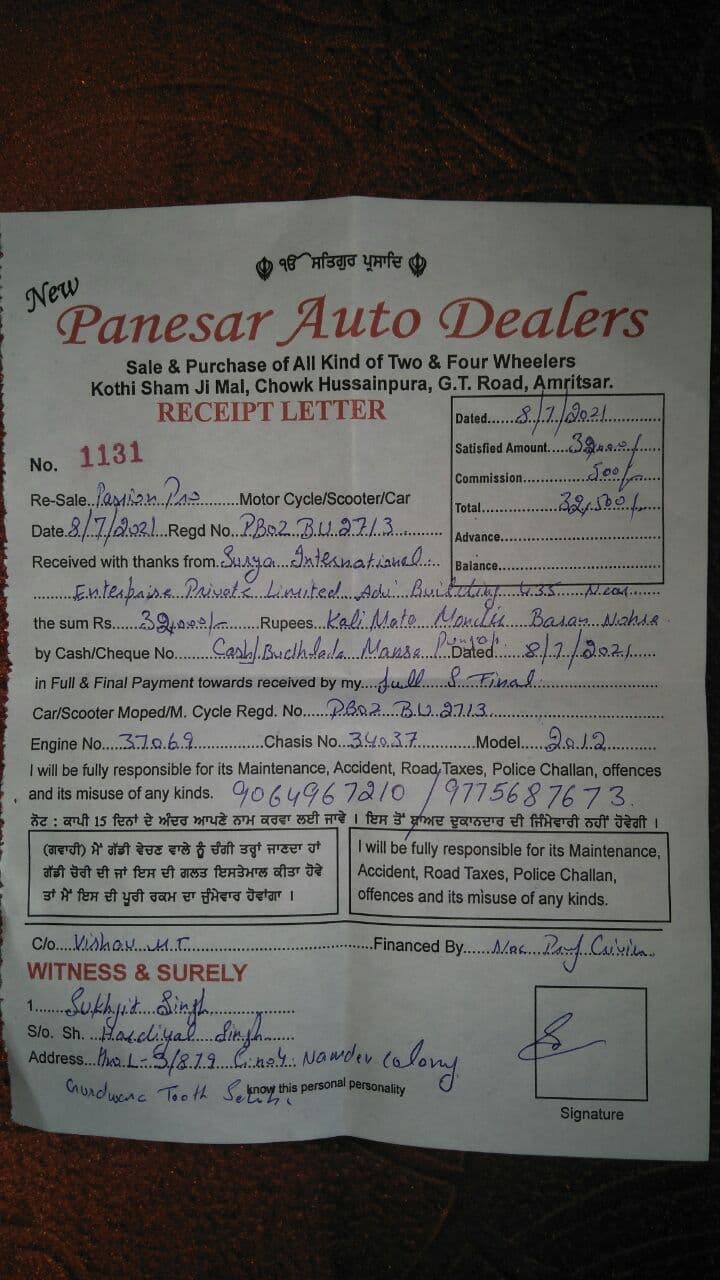 ੴ ਸਤਿਗੁਰ ਪ੍ਰਸਾਦਿ
New
Panesar Auto Dealers
Sale & Purchase of All Kind of Two & Four Wheelers
Kothi Sham Ji Mal, Chowk Hussainpura, G.T. Road, Amritsar.
RECEIPT LETTER
Dated......8/7/2021
Satisfied Amount....32,000/-
Commission............500/-
Total...........32,500/-
Advance...................
Balance...................
No. 1131
Re-Sale Passion Pro Motor Cycle/Scooter/Car
Date 8/7/2021 Regd No. PB02 BU 2713
Received with thanks from Surya International
Enterprise Private Limited Adi Building 435 Near
the sum Rs 32,000/- Rupees Kali Mata Mandir Baran
by Cash/Cheque No. Cash/Budhlada Mansa Punjab Dated 8/7/2021
in Full & Final Payment towards received by my full & Final
Car/Scooter Moped/M. Cycle Regd. No. PB02 BU 2713
Engine No. 37069 Chasis No. 34037 Model 2012
I will be fully responsible for its Maintenance, Accident, Road Taxes, Police Challan, offences
and its misuse of any kinds. 9064967210 / 9775687673.
ਨੋਟ : ਕਾਪੀ 15 ਦਿਨਾਂ ਦੇ ਅੰਦਰ ਆਪਣੇ ਨਾਮ ਕਰਵਾ ਲਈ ਜਾਵੇ । ਇਸ ਤੋਂ ਬਾਅਦ ਦੁਕਾਨਦਾਰ ਦੀ ਜਿੰਮੇਵਾਰੀ ਨਹੀਂ ਹੋਵੇਗੀ ।
(ਗਵਾਹੀ) ਮੈਂ ਗੱਡੀ ਵੇਚਣ ਵਾਲੇ ਨੂੰ ਚੰਗੀ ਤਰ੍ਹਾਂ ਜਾਣਦਾ ਹਾਂ
ਗੱਡੀ ਚੋਰੀ ਦੀ ਜਾਂ ਇਸ ਦੀ ਗਲਤ ਇਸਤੇਮਾਲ ਕੀਤਾ ਹੋਵੇ
ਤਾਂ ਮੈਂ ਇਸ ਦੀ ਪੂਰੀ ਰਕਮ ਦਾ ਜੁੰਮੇਵਾਰ ਹੋਵਾਂਗਾ ।
I will be fully responsible for its Maintenance,
Accident, Road Taxes, Police Challan,
offences and its misuse of any kinds.
C/o Vishav M.T. Financed By Noc
WITNESS & SURELY
1 Sukhjit Singh
S/o. Sh. Hardiyal Singh
Address Hno L-5/879 Namdev Colony
Gurdwara Tooth know this personal personality
Signature